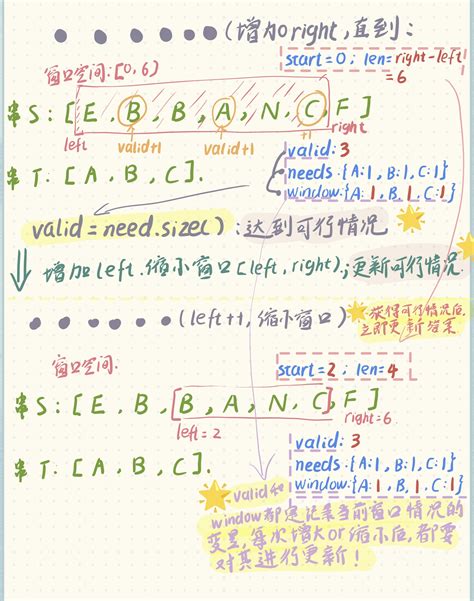 (增加right,直到:
start=0; len=right-left
=6
窗口空间:[0,6)
串S:[E,B,B,A,N,C,F]
left valid+1 valid+1 +1 right
valid:3
串T.[A,B,C].
needs:{A:1,B:1,C:1}
window:{A:1,B,1,C:1}
valid=need.size():达到可行情况
增加left.缩小窗口[left,right);更新可行情况.
(left++,缩小窗口)
获得可行情况后,
立即更新答案
窗口空间.
start=2; len=4
串S:[E,B,B,B,A,N,C,F]
left=2 right=6.
valid:3
串T.[A,B,C].
needs:{A:1,B:1,C:1}
window:{A:1,B,1,C:1}
valid和
window都是记录当前窗口情况的
变量,每次增大or缩小后,都要
对其进行更新!